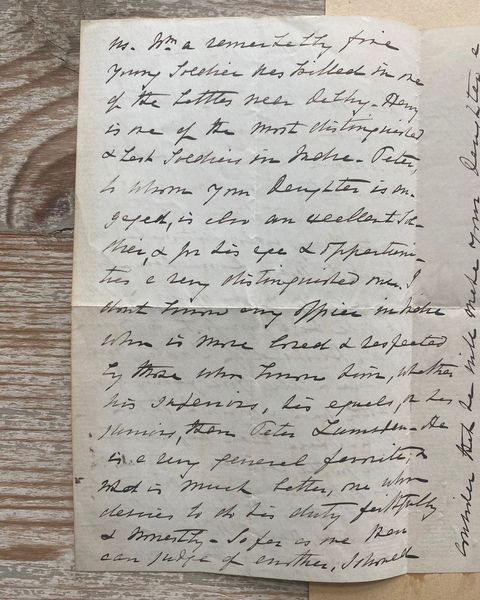 us. Wm a remarkably fine
young Soldier was killed in one
of the battles near Delhy - Harry
is one of the most distinguished
& best Soldiers in India - Peter,
to whom your Daughter is en-
gaged, is also an excellent Sol-
dier, & for his age & opportuni-
ties a very distinguished one. I
dont know any officer in India
who is more loved & respected
by those who know him, whether
his superiors, his equals, or his
juniors, than Peter Lumsden - He
is a very general favorite, &
what is much better, one who
desires to do his duty faithfully
& honestly - So far as one man
can judge of another, I should
consider that he will make your Daughter a